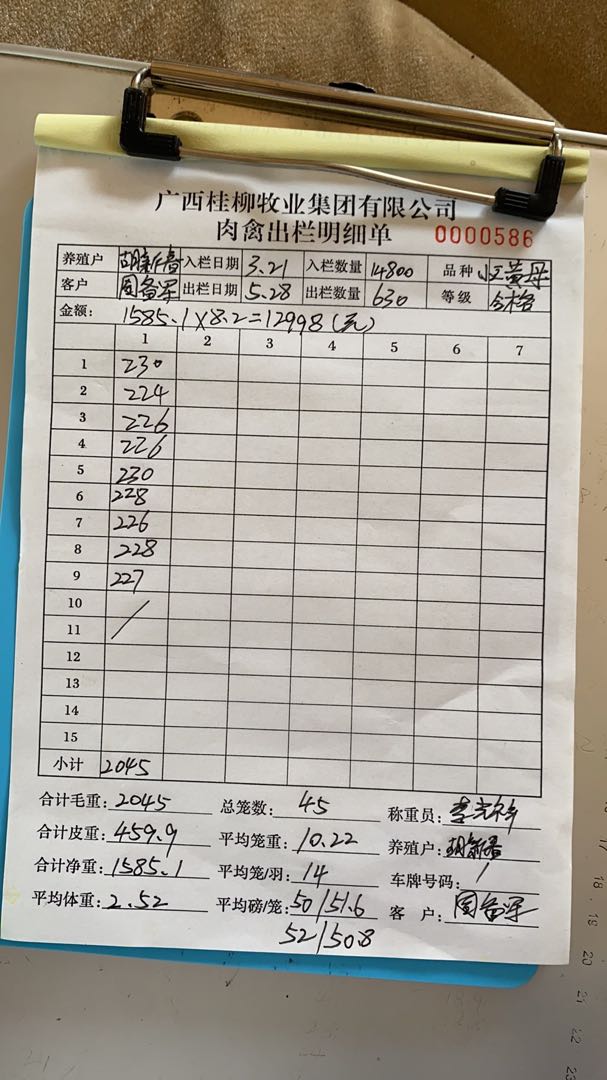 广西桂柳牧业集团有限公司
肉禽出栏明细单 0000586
养殖户 胡新春 入栏日期 3.21 入栏数量 14800 品种 红黄母
客户 周备军 出栏日期 5.28 出栏数量 630 等级 合格
金额: 1585.1×8.2=12998(元)
1 2 3 4 5 6 7
1 230
2 224
3 226
4 226
5 230
6 228
7 226
8 228
9 227
10
11
12
13
14
15
小计 2045
合计毛重: 2045 总笼数: 45 称重员:
合计皮重: 459.9 平均笼重: 10.22 养殖户: 胡新春
合计净重: 1585.1 平均笼/羽: 14 车牌号码: /
平均体重: 2.52 平均磅/笼: 50/51.6 客 户: 周备军
52/50.8
17
18
19
20
21
22
23